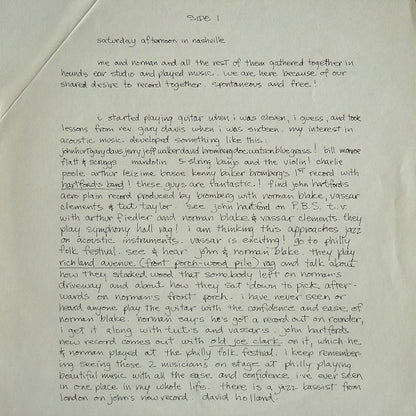 SIDE 1
saturday afternoon in nashville
me and norman and all the rest of them gathered together in
hounds ear studio and played music. we are here because of our
shared desire to record together. spontaneous and free!
i started playing guitar when i was eleven, i guess, and took
lessons from rev. gary davis when i was sixteen. my interest in
acoustic music developed something like this:
john hurt gary davis jerry jeff walker david bromberg doc watson bluegrass! bill monroe
flatt & scruggs mandolin 5-string banjo and the violin! charlie
poole arthur leizime brusoe kenny baker bromberg's 1st record with
hartford's band! these guys are fantastic! find john hartfords
aero plain record produced by bromberg with norman blake, vassar
clements & tut taylor. see john hartford on P.B.S. t.v.
with arthur fiedler and norman blake & vassar clements they
play symphony hall rag! i am thinking this approaches jazz
on acoustic instruments. vassar is exciting! go to philly
folk festival. see & hear john & norman blake. they play
richland avenue, (front porch-wood pile) rag and talk about
how they stacked wood that somebody left on norman's
driveway and about how they sat 'down to pick after-
wards on norman's front porch. i have never seen or
heard anyone play the guitar with the confidence and ease, of
norman blake. norman says he's got a record out on rounder,
i get it along with tut's and vassar's. john hartfords
new record comes out with old joe clark, on it, which he,
& norman played at the philly folk festival. i keep remember-
ing seeing those 2 musicians on stage at philly playing
beautiful music with all the ease and confidence i've ever seen
in one place in my whole life. there is a jazz bassist from
london on john's new record. david holland.